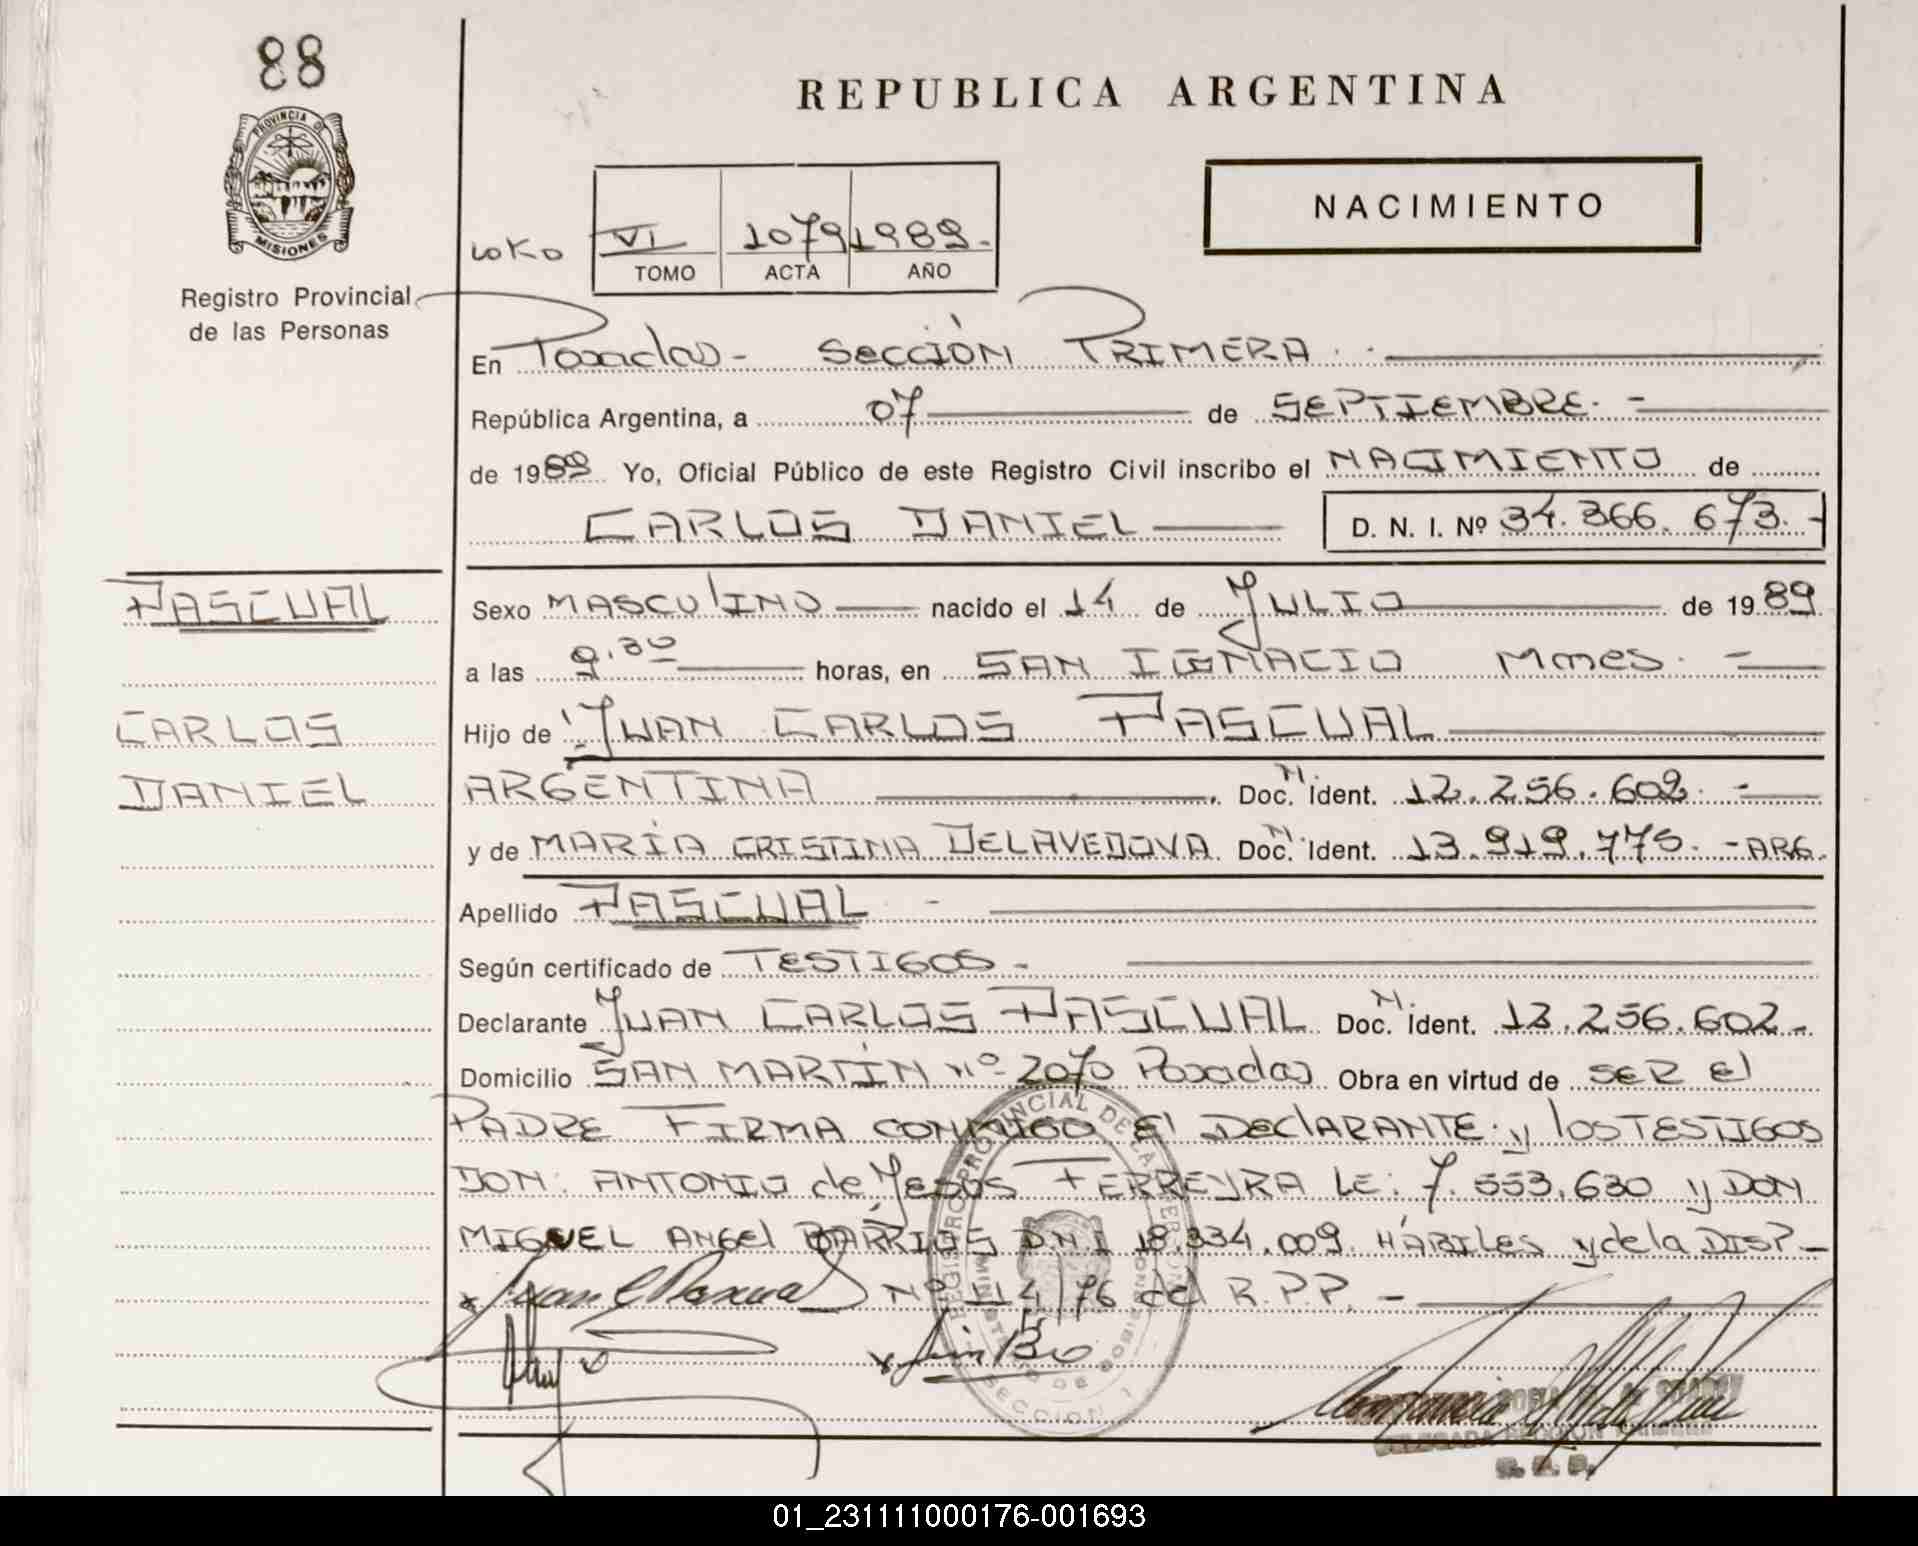 88
REPUBLICA ARGENTINA
PROVINCIA DE
MISIONES
Registro Provincial
de las Personas
NACIMIENTO
VI 1079 1989.-
TOMO ACTA AÑO
En Posadas- Sección PRIMERA.
República Argentina, a 07 de SEPTIEMBRE.-
de 1989 Yo, Oficial Público de este Registro Civil inscribo el NACIMIENTO de
CARLOS DANIEL D. N. I. Nº 34.366.673.-
PASCUAL
CARLOS
DANIEL
Sexo MASCULINO nacido el 14 de JULIO de 1989
a las 9.30 horas, en SAN IGNACIO Mnes.-
Hijo de JUAN CARLOS PASCUAL
ARGENTINA Doc. N. Ident. 12.256.602.-
y de MARÍA CRISTINA DELAVEDOVA Doc. N. Ident. 13.919.775.-ARG.
Apellido PASCUAL -
Según certificado de TESTIGOS-
Declarante JUAN CARLOS PASCUAL Doc. N. Ident. 12.256.602-
Domicilio SAN MARTÍN nº 2070 Posadas Obra en virtud de SER El
PADRE FIRMA CONMIGO El DEClARANTE y los TESTIGOS
DON: ANTONIO de JESÚS FERREYRA LE: 7.553.630 y DON
MIGUEL ANGEl BARRIOS D.N.I 18.334.009. HÁBILES y de la DISP-
Nº 114/76 del R.P.P.-
REGISTRO PROVINCIAL DE LAS PERSONAS
MINISTERIO DE GOBIERNO
SECCION 1
DELEGADA SECCION PRIMERA
01_231111000176-001693